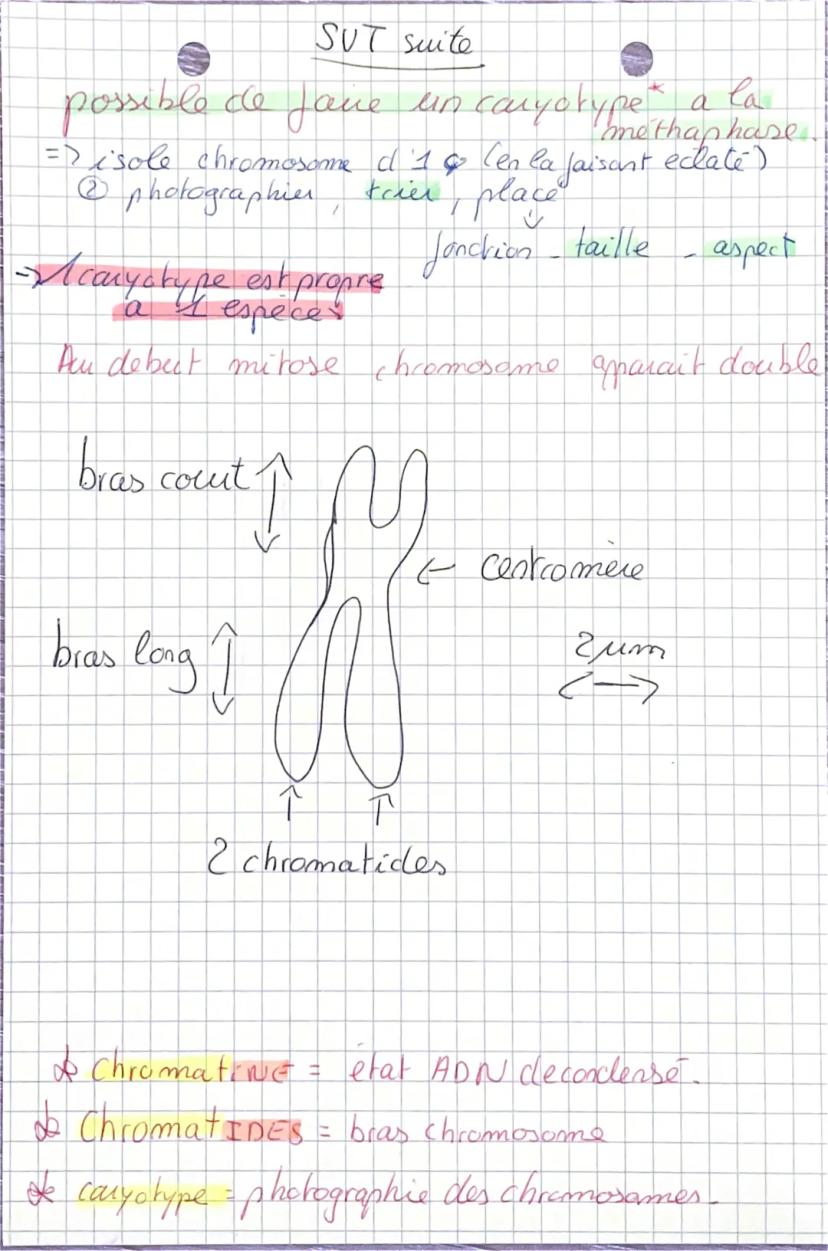 SVT suite
possible de faire un caryotype* a la
méthaphase.
=> isole chromosome d'1 (en la faisant eclaté)
② photographier, trier, placé
↓
fonction - taille - aspect
→ 1 caryotype est propre
a 1 espèce
Au debut mitose chromosome apparait double
bras court
← centromère
bras long
2 µm
2 chromatides
* ChromatINE = état ADN decondensé.
* ChromatIDES = bras chromosome
* caryotype = photographie des chromosomes.